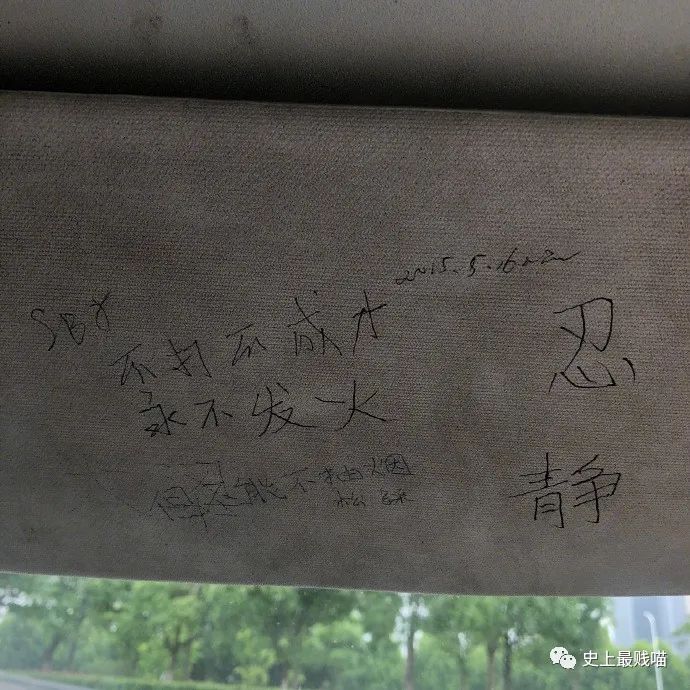 2015.5.16
SB
不打不成才
永不发火
但还能不抽烟
忍
静
史上最贱喵